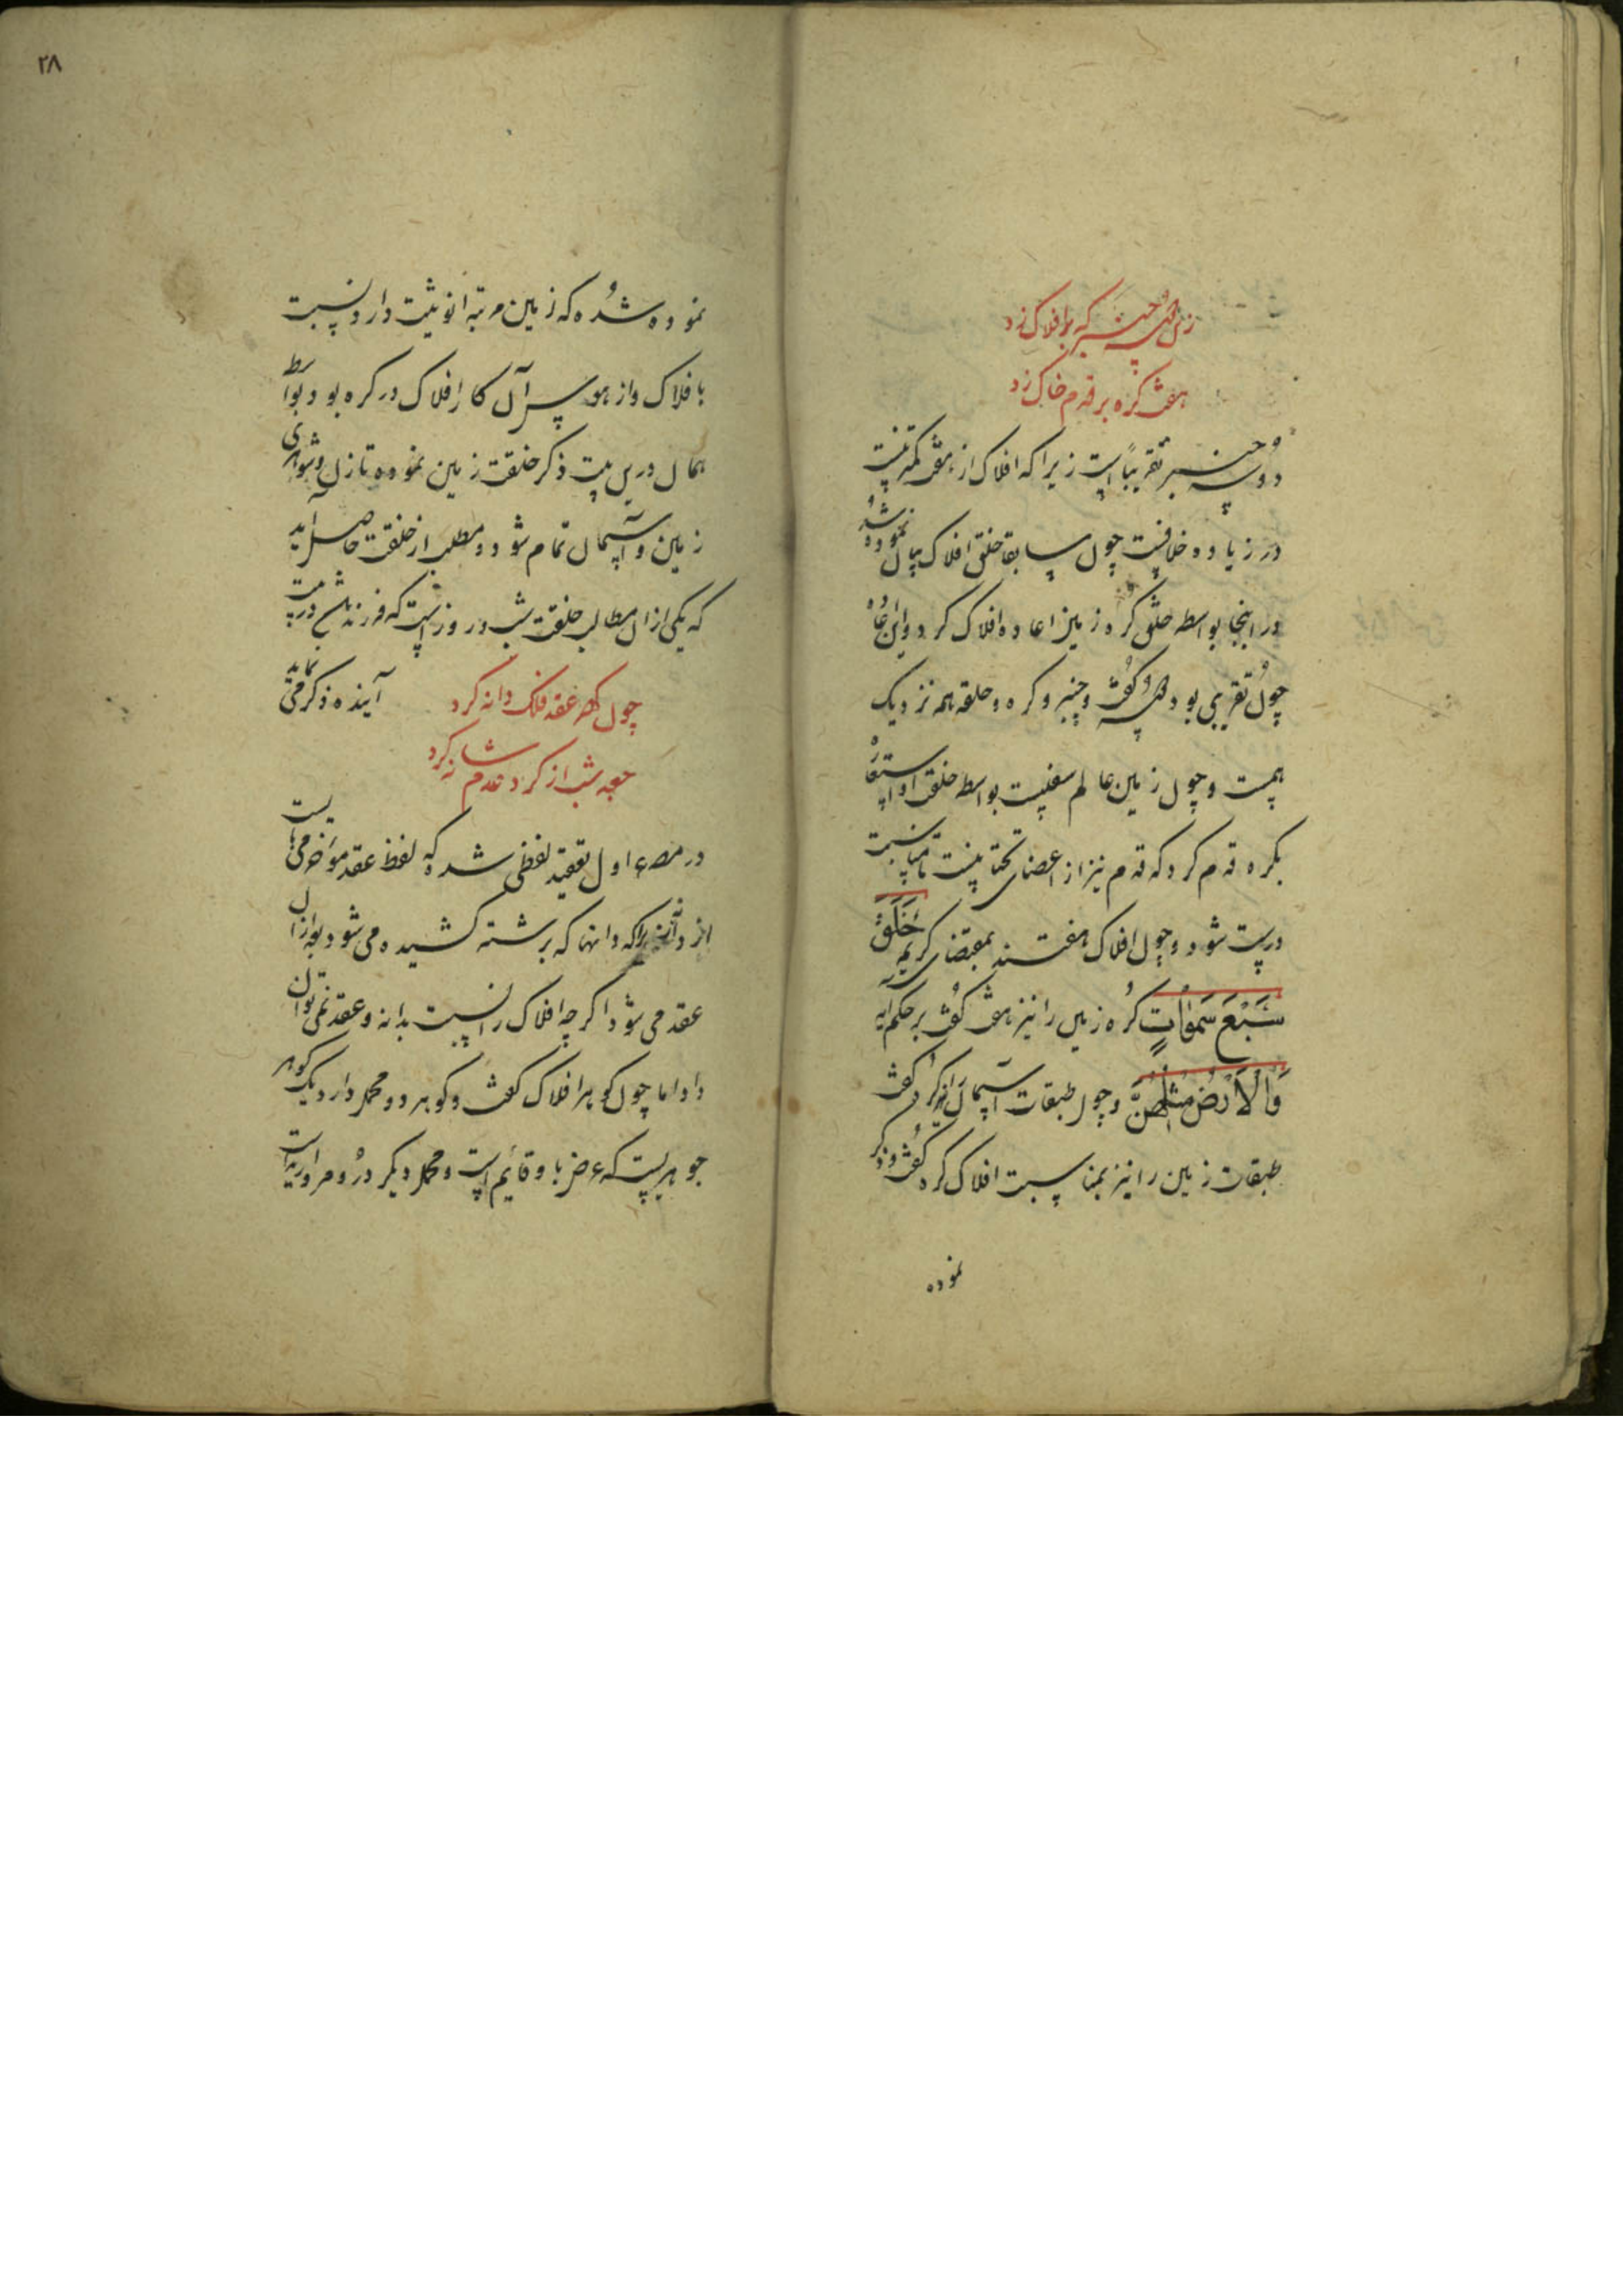 زین دو سه چنبر که بر افلاک زد
هفت گره بر قدم خاک زد
دو سه چنبر تقریباً است زیرا که افلاک از هفت کمتر نیست
در زیاده خلافیست چون سابقا خلق افلاک بیان نموده شد
در اینجا بواسطه خلق کره زمین اعاده افلاک کرد و این اعاده
چون تقریبی بود دو سه گفت و چنبر و کره و حلقه همه نزدیک
بهمست و چون زمین عالم سفلیست بواسطه خلقت او استعاره
بکره قدم کرد که قدم نیز از اعضای تحتانیست تا مناسبت
درست شود و چون افلاک هفتند بمقتضای کریمه خَلَقَ
سَبْعَ سَمٰوَاتٍ کره زمین را نیز هفت گفت بر حکم آیه
وَالْاَرْضُ مِثْلَهُنَّ و چون طبقات آسمان را نیز کره گفت
طبقات زمین را نیز بمناسبت افلاک کره گفت و ذکر
نموده
۲۸
نموده شده که زمین مرتبه انوثیت دارد نسبت
با فلاک و از هوس آن کار افلاک در گره بود بواسطه
همان درین بیت ذکر خلقت زمین نموده تا زن و شوهری
زمین و آسمان تمام شود و مطلب از خلقت حاصل آید
که یکی از آن مطالب خلقت شب و روز است که فرزندانش در بیت
آینده ذکر می نماید
چون گهر عقد فلک دانه کرد
جعد شب از گرد عدم شانه کرد
در مصرع اول تعقید لفظی شد که لفظ عقد مؤخر می بایست
از دانه زیرا که دانها که برشته کشیده می شود بعد از آن
عقد می شود اگر چه افلاک را نسبت بدانه و عقد نمی توان
داد اما چون گوهر افلاک گفت و گوهر دو محمل دارد یک گوهر
جوهریست که عرض با و قائم است و محمل دیگر در و مروارید است